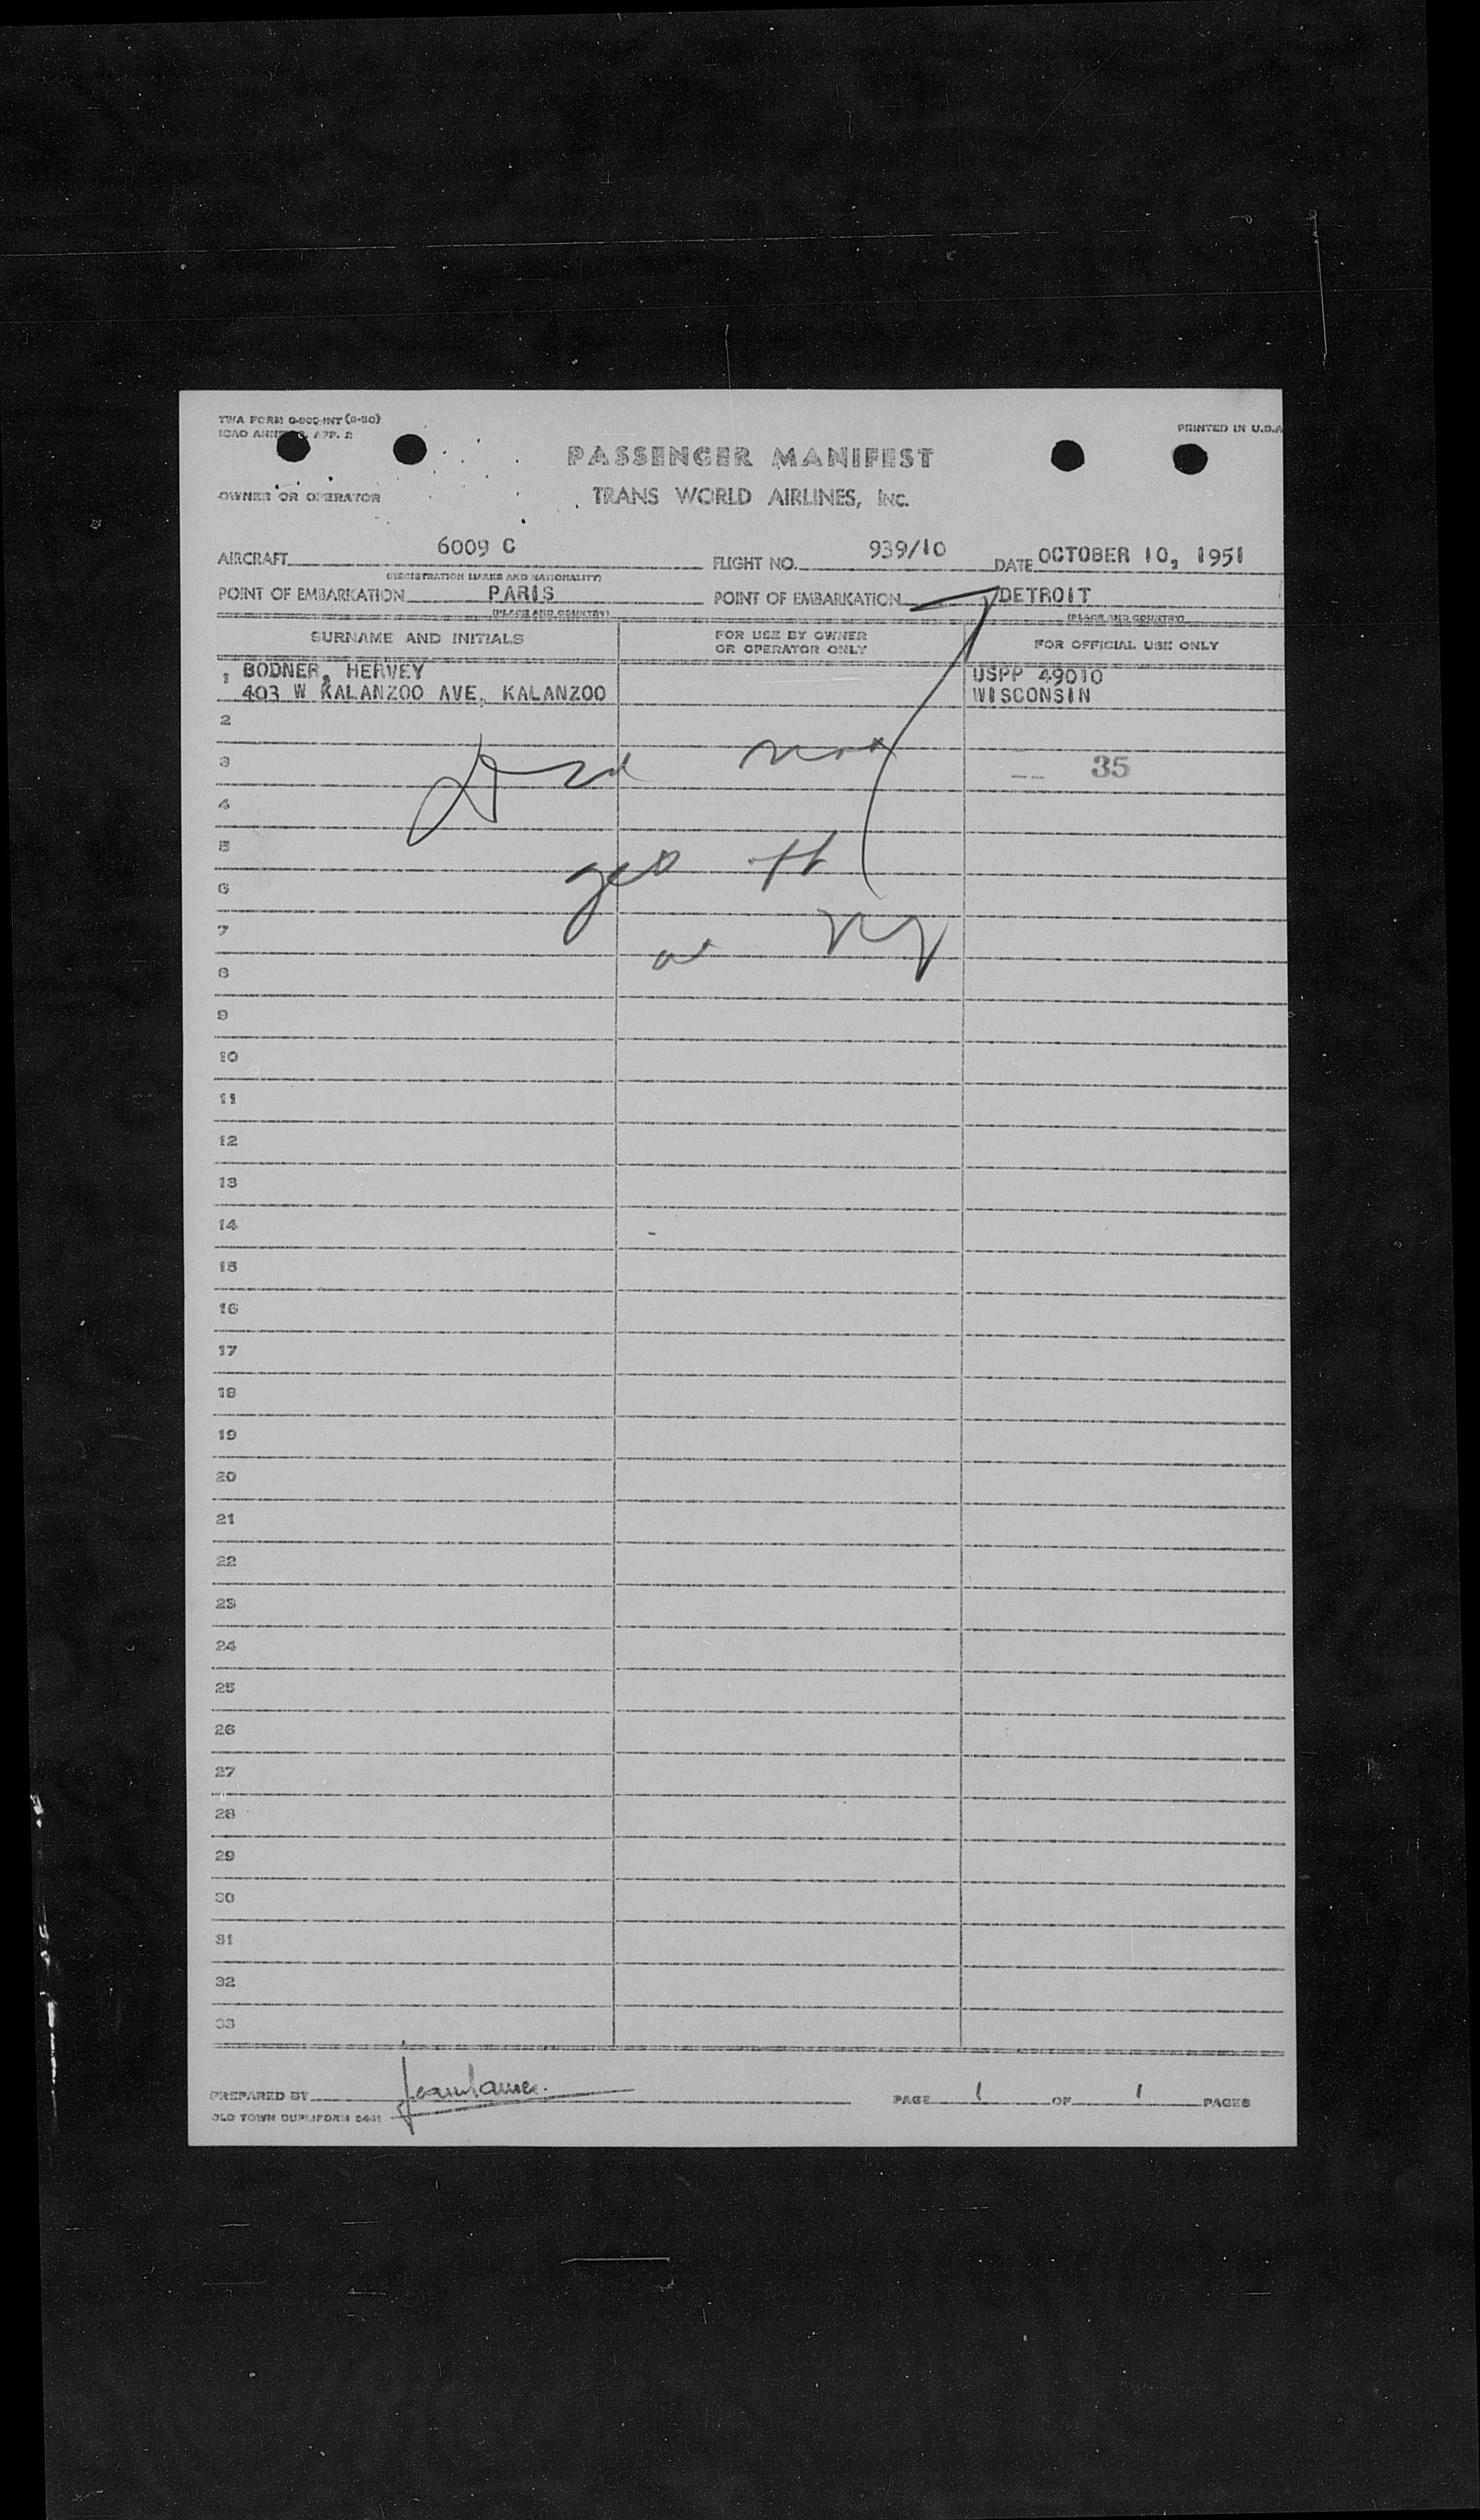 TWA FORM 0-800-INT (6-50)
ICAO ANNEX 9, APP. 2
PRINTED IN U.S.A
PASSENGER MANIFEST
OWNER OR OPERATOR TRANS WORLD AIRLINES, INC.
AIRCRAFT 6009 C FLIGHT NO. 939/10 DATE OCTOBER 10, 1951
(REGISTRATION MARKS AND NATIONALITY)
POINT OF EMBARKATION PARIS POINT OF EMBARKATION DETROIT
(PLACE AND COUNTRY) (PLACE AND COUNTRY)
SURNAME AND INITIALS FOR USE BY OWNER OR OPERATOR ONLY FOR OFFICIAL USE ONLY
1 BODNER, HERVEY USPP 49010
403 W KALANZOO AVE, KALANZOO WISCONSIN
2
3 Did not 35
4
5
6 get off
7
8 at NY
9
10
11
12
13
14
15
16
17
18
19
20
21
22
23
24
25
26
27
28
29
30
31
32
33
PREPARED BY PAGE 1 OF 1 PAGES
OLD TOWN DUPLIFORM